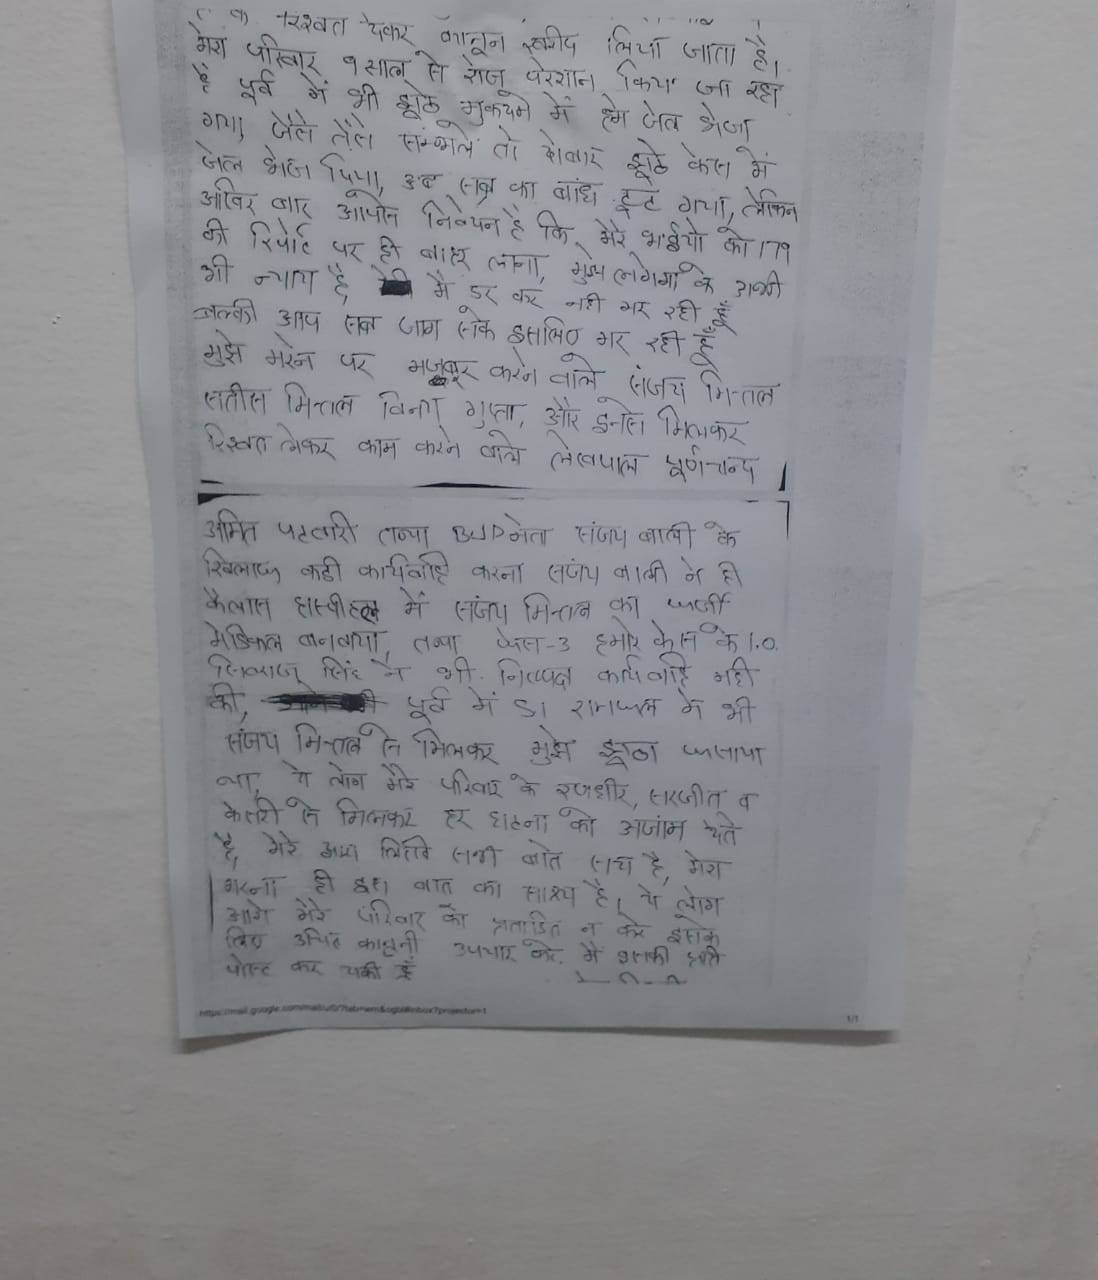 रिश्वत देकर कानून खरीद लिया जाता है।
मेरा परिवार 9 साल से रोज परेशान किया जा रहा
है पूर्व में भी झूठे मुकदमे में हमे जेल भेजा
गया, जैसे तैसे सम्भले तो दोबार झूठे केस में
जेल भेज दिया, अब सब्र का बांध टूट गया, लेकिन
आखिर बार आपसे निवेदन है कि, मेरे भाईयो को 179
की रिपोर्ट पर ही बाहर लाना, मुझे लगेगा के अभी
भी न्याय है, मै डर कर नही मर रही हूँ
बल्की आप सब जाग सके इसलिए मर रही हूँ
मुझे मरने पर मजबूर करने वाले संजय मित्तल
सतीस मित्तल विनय गुप्ता, और इनसे मिलकर
रिश्वत लेकर काम करने वाले लेखपाल पूर्णचन्द
अमित पटवारी तथा BJP नेता संजय बाली के
खिलाफ कडी कार्यवाहि करना संजय बाली ने ही
कैलास हास्पीटल में संजय मित्तल का फर्जी
मेडिकल बनवाया, तथा फेस-3 हमारे केस के I.O.
सिंह ने भी निष्पक्ष कार्यवाहि नही
की, पूर्व में SI रामफल ने भी
संजय मित्तल से मिलकर मुझे झूठा फसाया
था, ये लोग मेरे परिवार के रणधीर, सरजीत व
केसरी से मिलकर हर घटना को अजांम देते
है, मेरे द्वारा लिखि सभी बाते सच है, मेरा
मरना ही इस बात का साक्ष्य है। ये लोग
आगे मेरे परिवार को प्रताडित न करे इसके
लिए उचित कानूनी उपचार करे. मै इसकी प्रति
पोस्ट कर चुकी हूँ
1/1